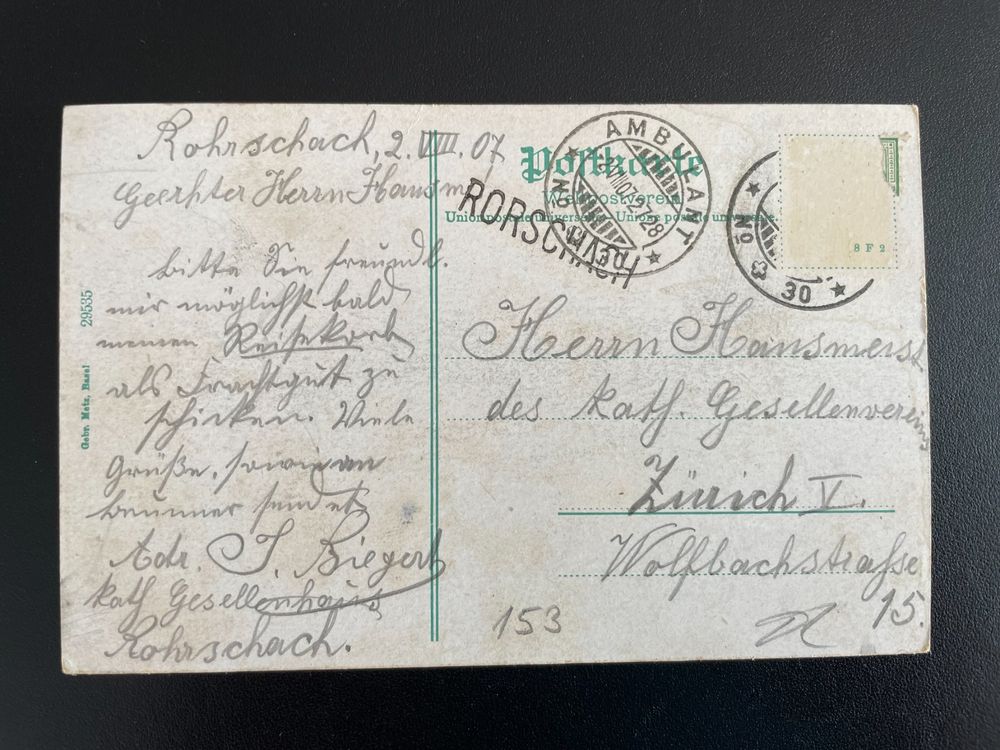 Rohrschach, 2. VIII. 07
Geerhter Herrn Hausm
bitte Sie freundl.
mir möglichst bald
meinen Reisekorb
als Frachtgut zu
schicken. Viele
Grüße, sowie an
brunner sendet
Adr. J. Biegert
kath Gesellenhaus
Rohrschach.
Gebr. Metz, Basel 29535
Postkarte
Weltpostverein
Union postale universelle. Unione postale universale.
AMBULANT
RORSCHACH
No
30
8 F 2
Herrn Hausmeist
des kath. Gesellenverein
Zürich V.
Wolfbachstrasse
15.
153